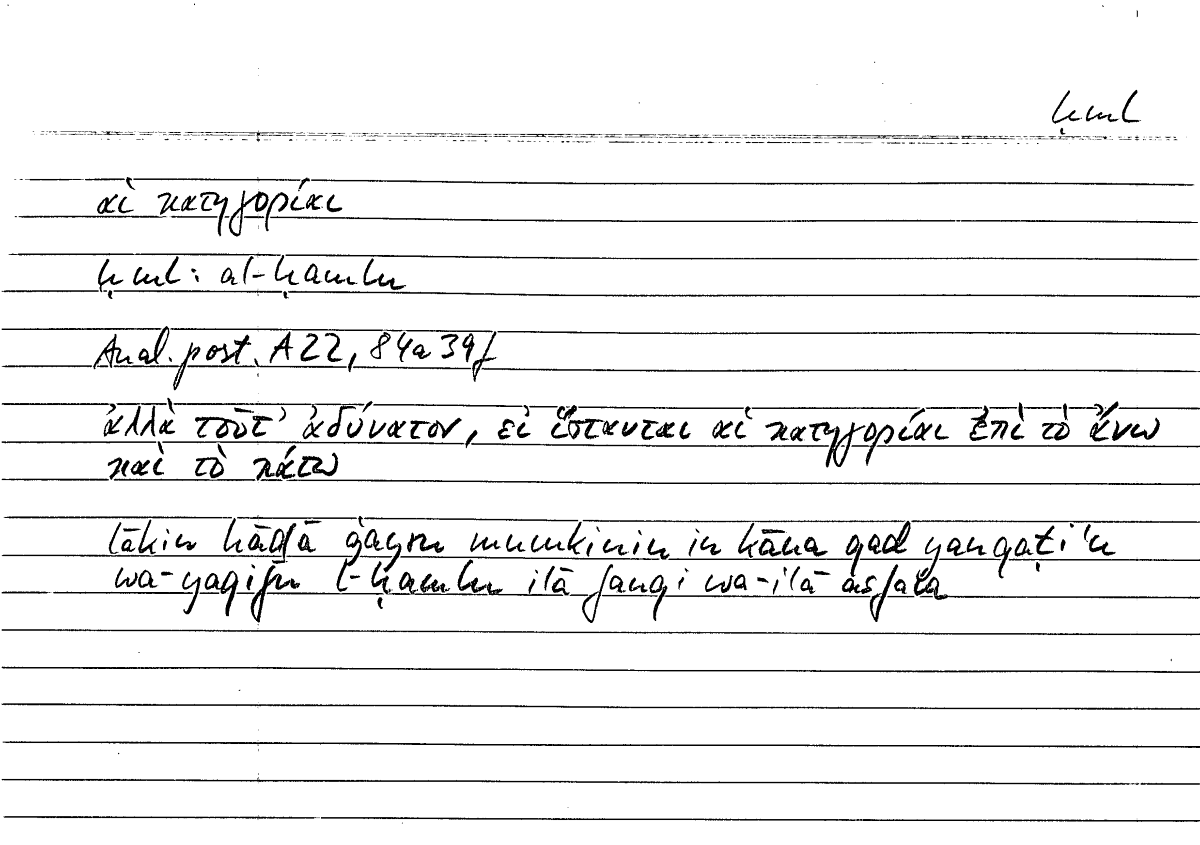 ḥml
αἱ κατηγορίαι
ḥml: al-ḥamlu
Anal. post. A 22, 84a 39f
ἀλλὰ τοῦτ’ ἀδύνατον, εἰ ἵστανται αἱ κατηγορίαι ἐπὶ τὸ ἄνω
καὶ τὸ κάτω
lākin hāḏā ġayru mumkinin in kāna qad yanqaṭiʿu
wa-yaqifu l-ḥamlu ilā fauqi wa-ilā asfala